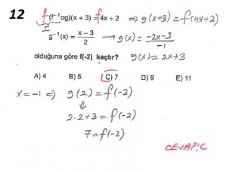 12 f (f⁻¹og)(x + 3) = f 4x + 2 ⇒ g(x+3) = f(4x+2)
I
g⁻¹(x) = (x – 3)/2 → g(x) = (-2x-3)/-1
olduğuna göre f(-2) kaçtır? g(x) = 2x+3
A) 4 B) 5 C) 7 D) 9 E) 11
x = -1 ⇒ g(2) = f(-2)
2·2+3 = f(-2)
7 = f(-2)
CEVAP:C